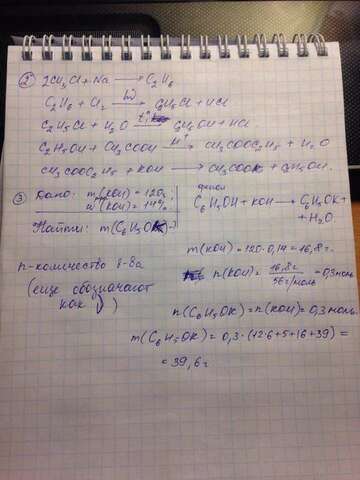 ② 2CH₃Cl + Na ⟶ C₂H₆
C₂H₆ + Cl₂ —hν→ C₂H₅Cl + HCl
C₂H₅Cl + H₂O —t°→ C₂H₅OH + HCl
C₂H₅OH + CH₃COOH —H⁺→ CH₃COOC₂H₅ + H₂O
CH₃COOC₂H₅ + KOH ⟶ CH₃COOK + C₂H₅OH.
③ Дано: m(KOH) = 120г
w(KOH) = 14%.
Найти: m(C₆H₅OK) - ?
фенол
C₆H₅OH + KOH ⟶ C₆H₅OK +
+ H₂O.
m(KOH) = 120·0,14 = 16,8г.
n(KOH) = 16,8г / 56г/моль = 0,3моль
n-количество в-ва
(еще обозначают
как ν)
n(C₆H₅OK) = n(KOH) = 0,3моль.
m(C₆H₅OK) = 0,3·(12·6+5+16+39) =
= 39,6г